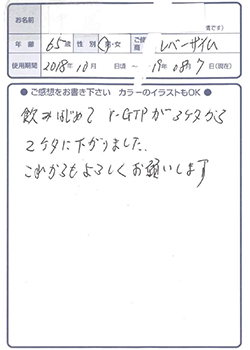 お名前
年齢 65歳 性別 男・女 レバーザイム
使用期間 2018年10月 日頃～ 19年08月7日(現在)
● ご感想をお書き下さい カラーのイラストもOK ●
飲みはじめて γ-GTPが3ケタから
2ケタに下がりました。
これからもよろしくお願いします